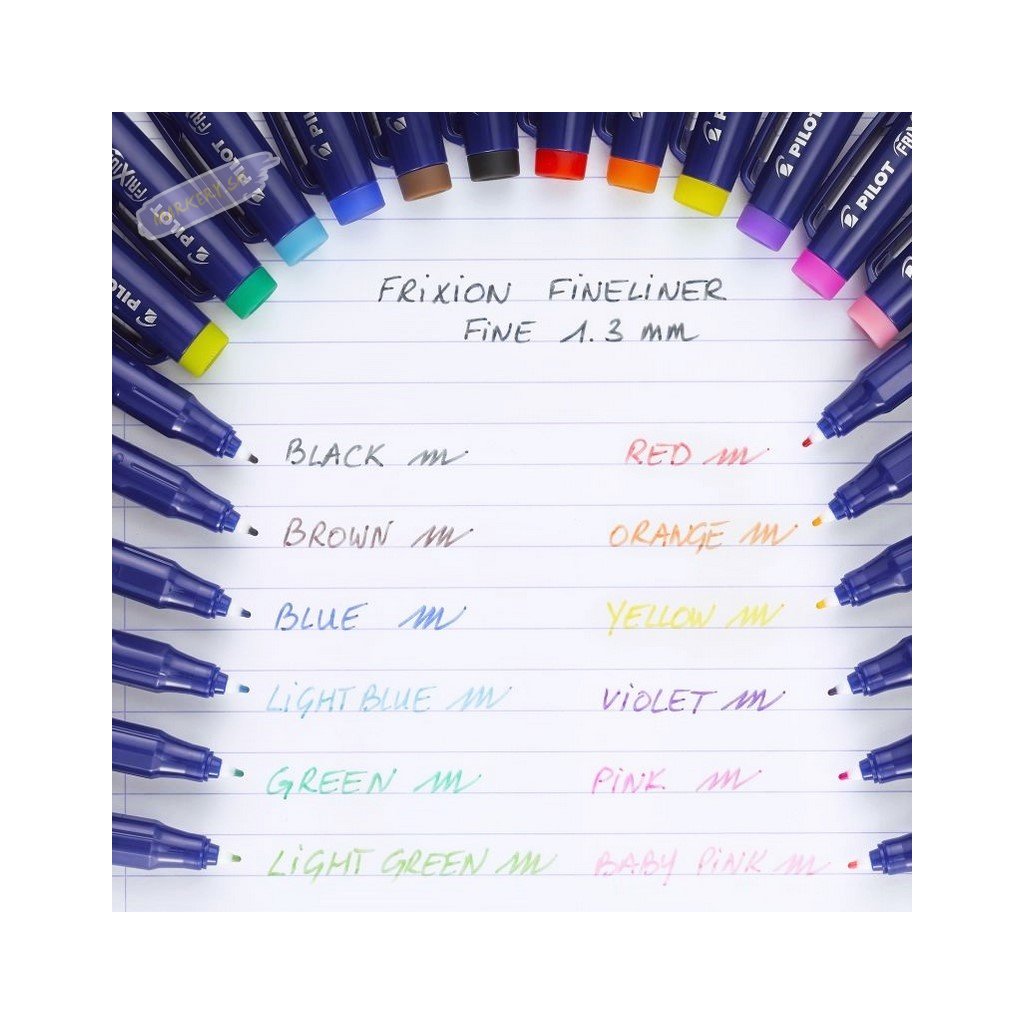 FRIXION
PILOT
FRIXION
PILOT
PILOT
PILOT
PILOT
PILOT
FRIX
PILOT
FRIXION FINELINER
FINE 1.3 mm
BLACK RED
BROWN ORANGE
BLUE YELLOW
LIGHT BLUE VIOLET
GREEN PINK
LIGHT GREEN BABY PINK